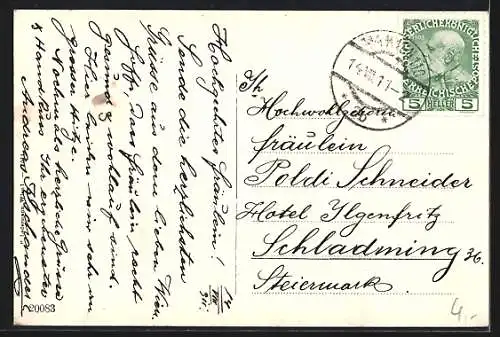 Hochgeehrtes Fräulein!
Sende die herzlichsten
Grüsse aus dem lieben Wien.
Hoffe, das Fräulein recht
gesund & wohlauf sind.
Hier leiden wir sehr an
grosser Hitze.
Nochmals herzliche Grüsse
& Handkuss Ihr ergebenster
14
VIII
911.
20083
14.VIII.11
KAISERLICHE KÖNIGLICHE
ÖSTERREICHISCHE
5 HELLER 5
Hochwohlgeboren
Fräulein
Poldi Schneider
Hotel Ilgenfritz
Schladming 36.
Steiermark
4.-